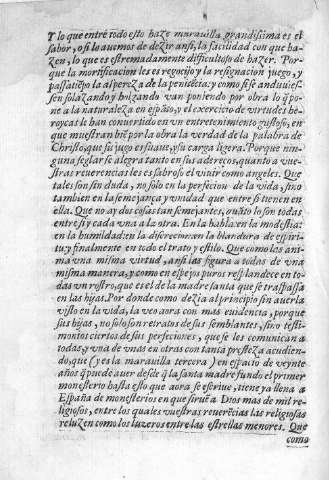 Y lo que entre todo esto haze marauilla grandisima es el
sabor, o si lo auemos de dezir ansi, la facilidad con que ha-
zen, lo que es estremadamente dificultoso de hazer. Por-
que la mortificacion les es regozijo y la resignacion juego, y
passatiẽpo la aspereza de la penitẽcia: y como si se anduuies-
sen solazando y holgando van poniendo por obra lo q̃ pone
a la naturaleza en espãto, y el exercicio de virtudes he-
roycas le han conuertido en vn entretenimiento gustoso, en
que muestran biẽ por la obra la verdad de la palabra de
Christo, que su jugo es suaue, y su carga ligera. Porque nin-
guna seglar se alegra tanto en sus adereços, quanto a vue-
stras reuerencias les es sabroso el viuir como angeles. Que
tales son sin duda, no solo en la perfecion de la vida, sino
tambien en la semejança y vnidad que entre si tienen en
ella. Que no ay dos cosas tan semejantes, quãto lo son todas
entre si y cada vna a la otra. En la habla: en la modestia:
en la humildad: en la discrecion: en la blandura de espiri-
tu, y finalmente en todo el trato y estilo. Que como las ani-
ma vna misma virtud, ansi las figura a todas de vna
misma manera, y como en espejos puros resplandece en to-
das vn rostro, que es el de la madre santa que se traspassa
en las hijas. Por donde como dezia al principio sin auerla
visto en la vida, la veo aora con mas euidencia, porque
sus hijas, no solo son retratos de sus semblantes, sino testi-
monios ciertos de sus perfeciones, que se les comunican a
todas, y van de vnas en otras con tanta presteza acudien-
do, que (y es la marauilla tercera) en espacio de veynte
años q̃ puede auer desde q̃ la santa madre fundo el primer
monesterio hasta esto que aora se escriue, tiene ya llena a
España de monesterios en que siruẽ a Dios mas de mil re-
ligiosos, entre los quales vuestras reuerẽcias las religiosas
reluzen como los luzeros entre las estrellas menores. Que
como